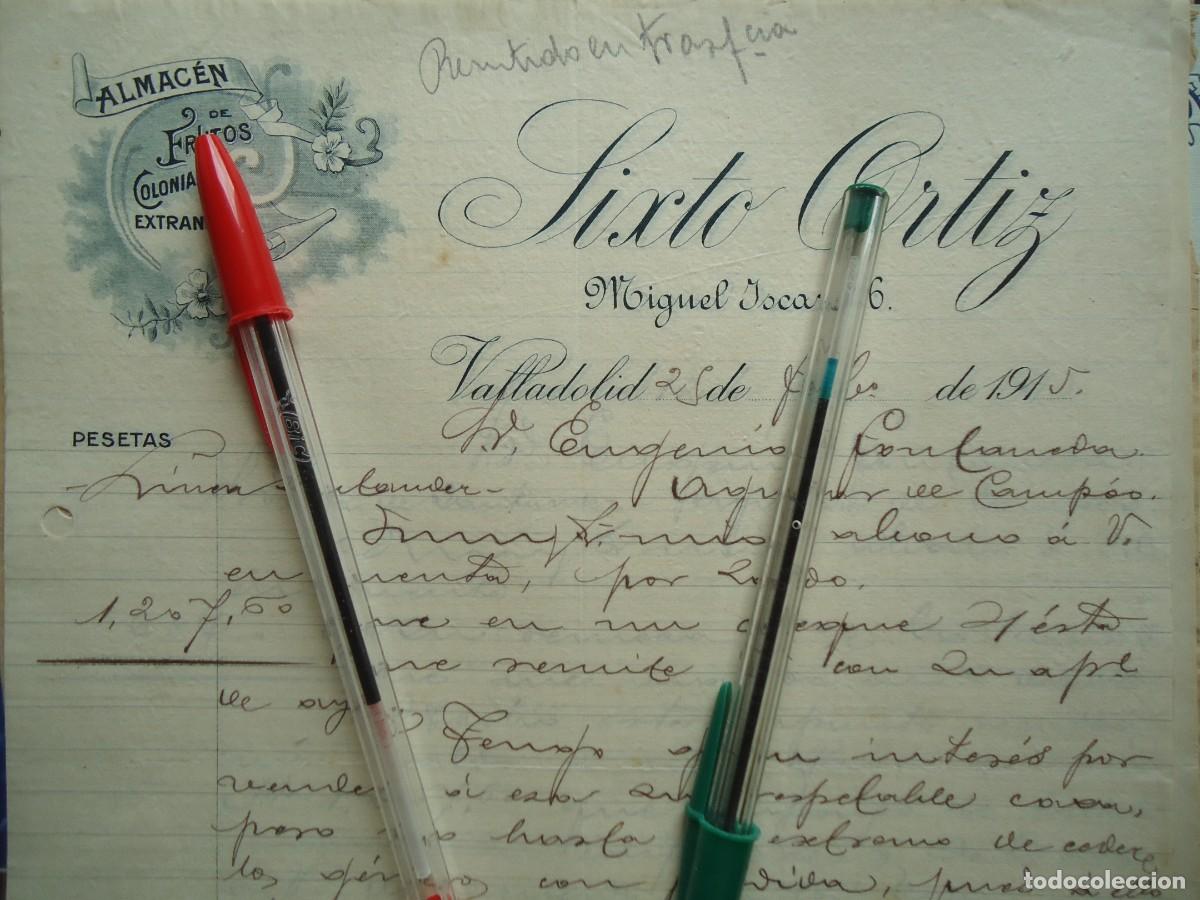 Remitido en trasfcia
ALMACÉN
DE
FRUTOS
COLONIA
EXTRAN
Sixto Ortiz
Miguel Iscar 6.
Valladolid 25 de de 1915.
PESETAS
D. Eugenio Fontaneda
Aguilar de Campóo.
abono á V.
en cuenta, por
1,207,60 que en un cheque ésta
que remite con su apl
de
Tengo interés por
vender á esa su respetable casa,
pero no hasta extremo de ceder
los géneros con pérdida, pues
BIC
todocoleccion